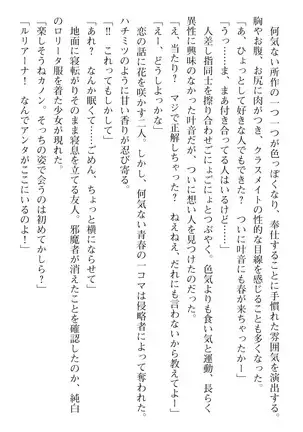 何気ない所作の一つ一つが色っぽくなり、奉仕することに手慣れた雰囲気を演出する。
胸やお腹、お尻に肉がつき、クラスメイトの性的な目線を感じることも多くなった。
「あ、ひょっとして好きな人でもできた？　ついに叶音にも春が来ちゃったかー」
「うっ……ま、まあ付き合ってる人はいるけど……」
人差し指同士を擦り合わせごにょごにょとつぶやく。色気よりも食い気と運動、長らく
異性に興味のなかった叶音が、ついに想い人を見つけたのだった。
「え、当たり？　マジで正解しちゃった？　ねえねえ、だれにも言わないから教えてよー」
「えー、どうしよっかな」
恋の話に花を咲かす二人。しかし、何気ない青春の一コマは侵略者によって奪われた。
ハチミツのように甘い香りが忍び寄る。
「これってもしかして」
「あれ？　なんか眠くて……ごめん、ちょっと横にならせて」
地面に寝転がりそのまま寝息を立てる友人。邪魔者が消えたことを確認したのか、純白
のロリータ服を着た少女が現れた。
「楽しそうねカノン。そっちの姿で会うのは初めてかしら？」
「ルリアーナ！　なんでアンタがここにいるのよ！」